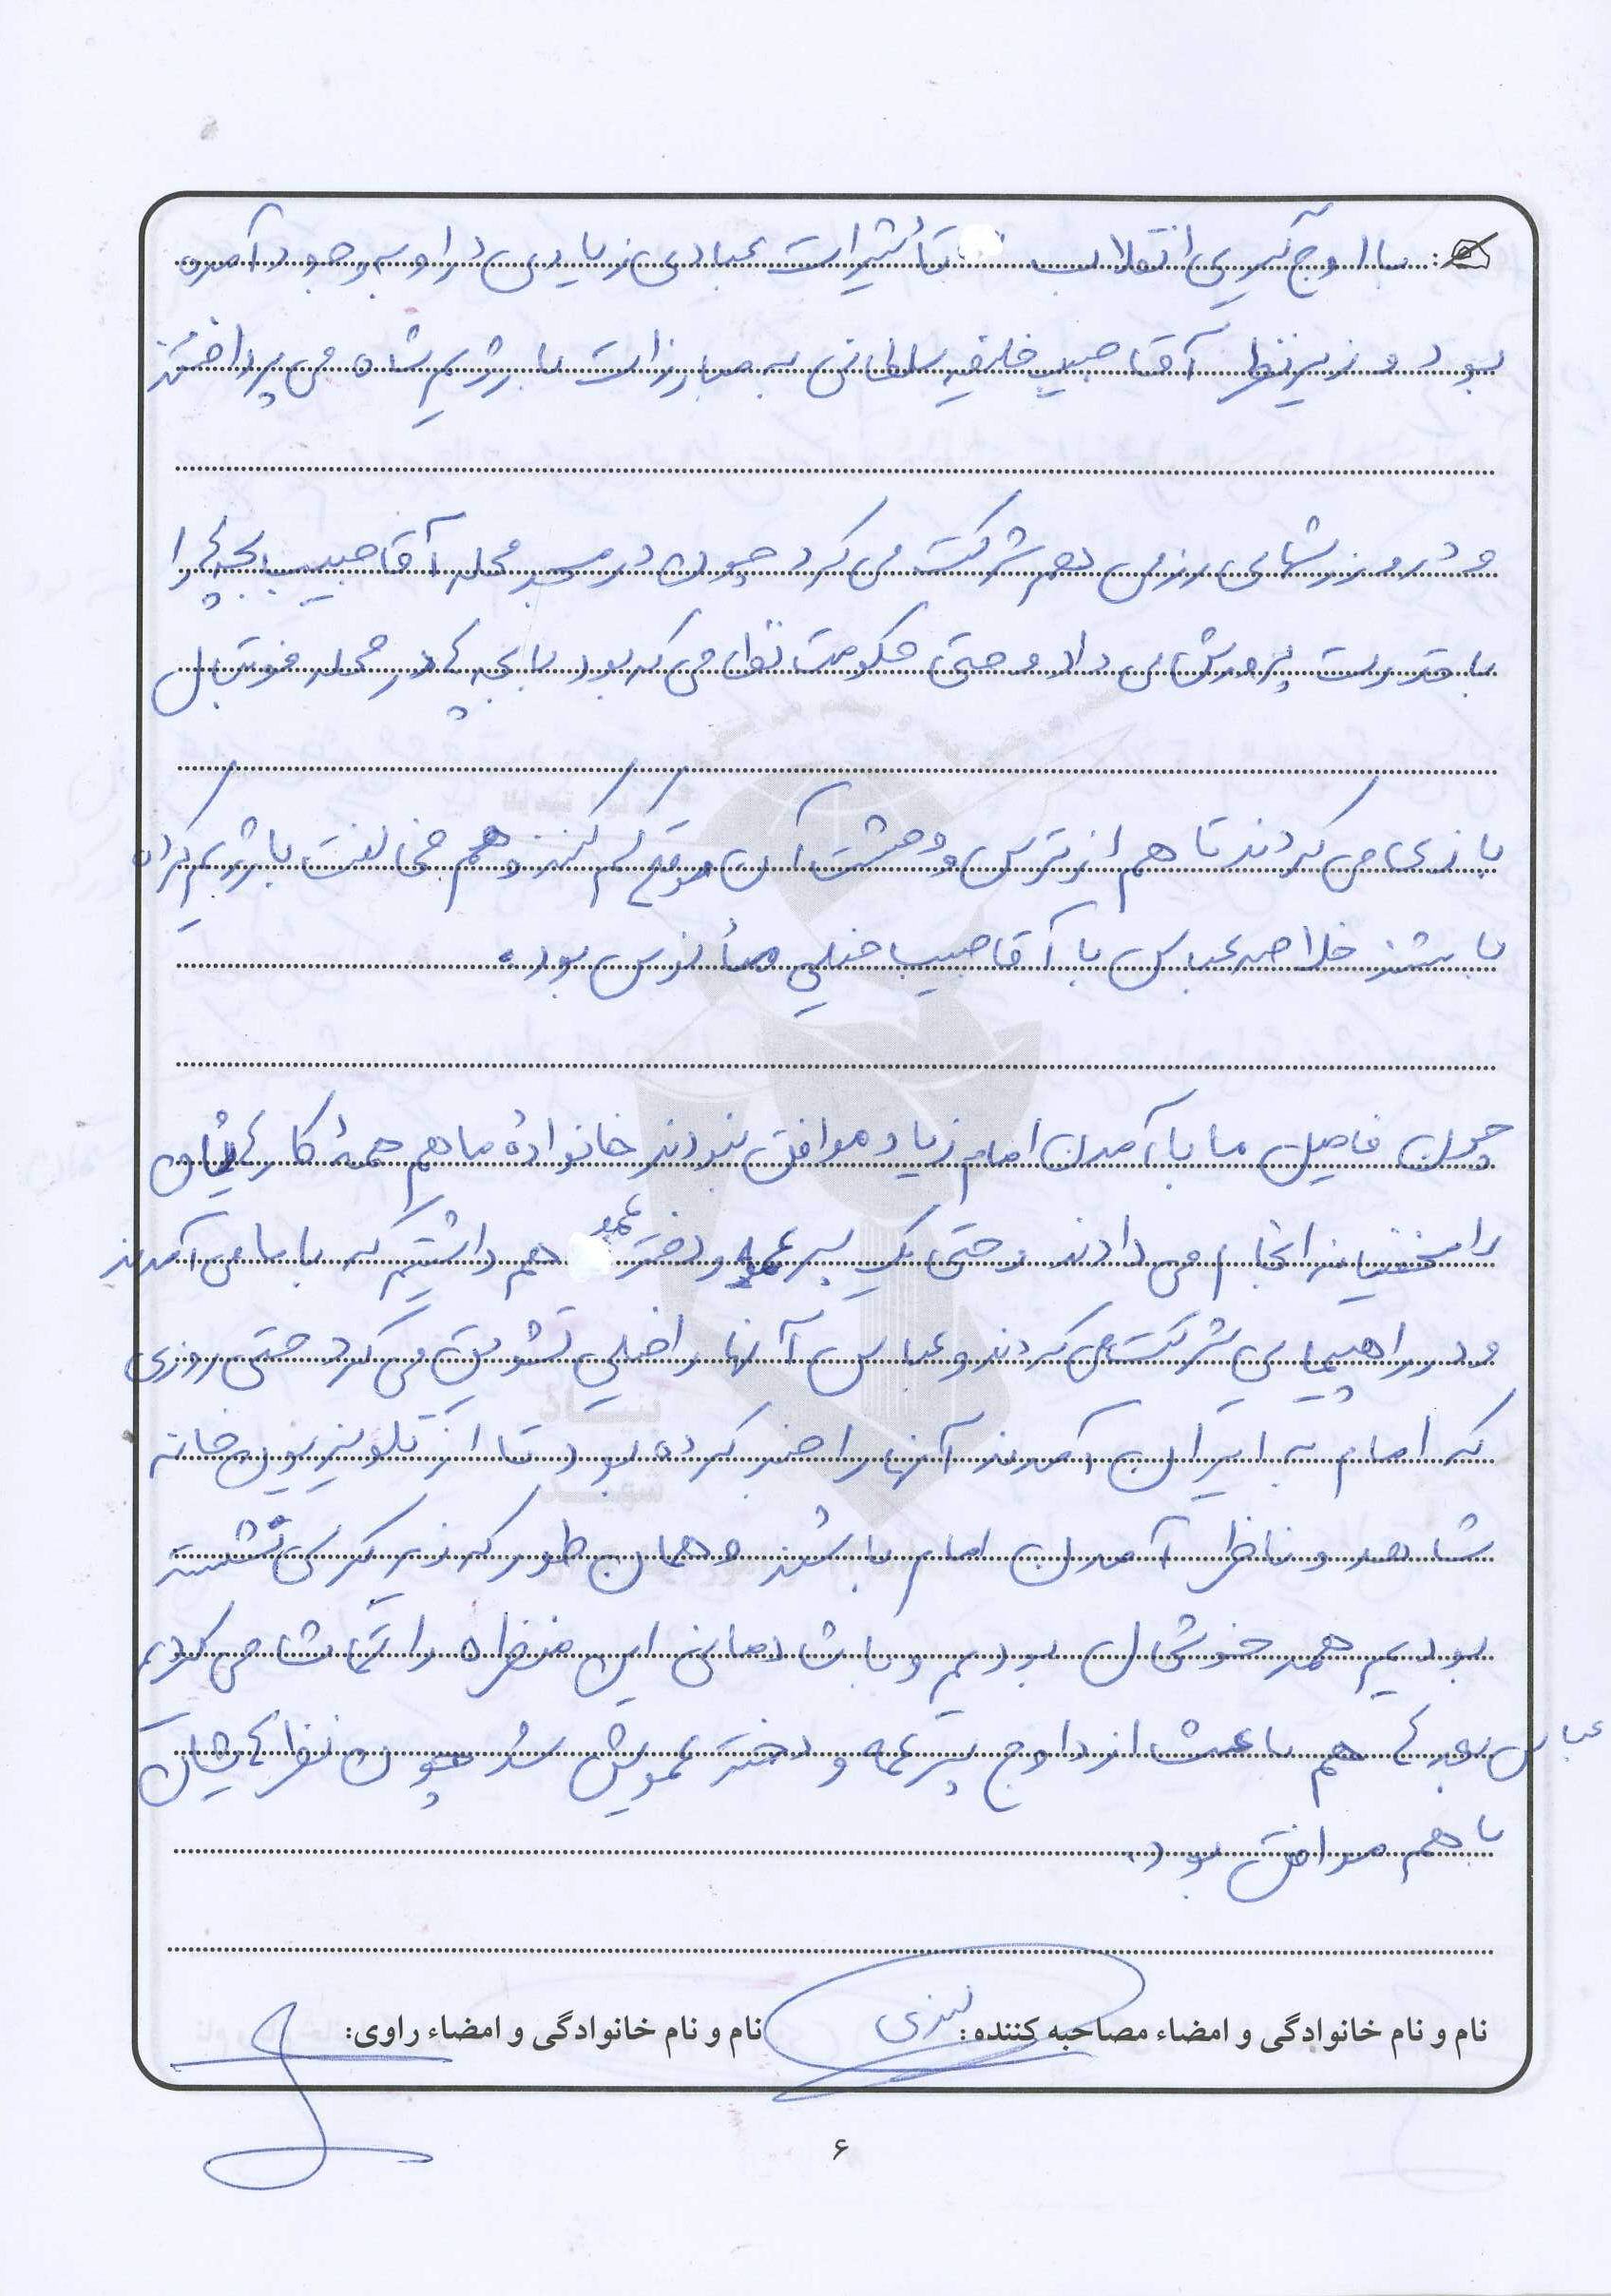 با اوج گیری انقلاب تأثیرات عبادی زیادی در او به وجود آمده
بود و زیر نظر آقا حبیب خلیفه سلطانی به مبارزات با رژیم شاه می پرداختند
و در ورزشهای رزمی هم شرکت می کرد چون در مسجد محله آقا حبیب بچه ها را
با قدرت پرورش می داد و حتی حکومت نظامی که بود با بچه ها در محله فوتبال
بازی می کردند تا هم از ترس و وحشت آن موقع کم کنند و هم مخالفت با رژیم کرده
باشند خلاصه عباس با آقا حبیب خیلی مأنوس بود.
چون فامیل ما با آمدن امام زیاد موافق نبودند خانوادهٔ ما هم همهٔ کارهایمان
را مخفیانه انجام می دادند و حتی یک پسر عمه و دختر عمو هم داشتیم که با ما می آمدند
و در راهپیمایی شرکت می کردند و عباس آنها را خیلی تشویق می کرد حتی روزی
که امام به ایران آمدند آنها را خبر کرده بود تا از تلویزیون خانه
شاهد و ناظر آمدن امام باشند و همان طور که زیر کرسی نشسته
بودیم همه خوشحال بودیم و با شادمانی این منظره را تماشا می کردیم
عباس بعدها هم باعث ازدواج پسر عمه و دختر عمویش شد چون نظرهایشان
با هم موافق بود.
نام و نام خانوادگی و امضاء مصاحبه کننده: نام و نام خانوادگی و امضاء راوی:
۶